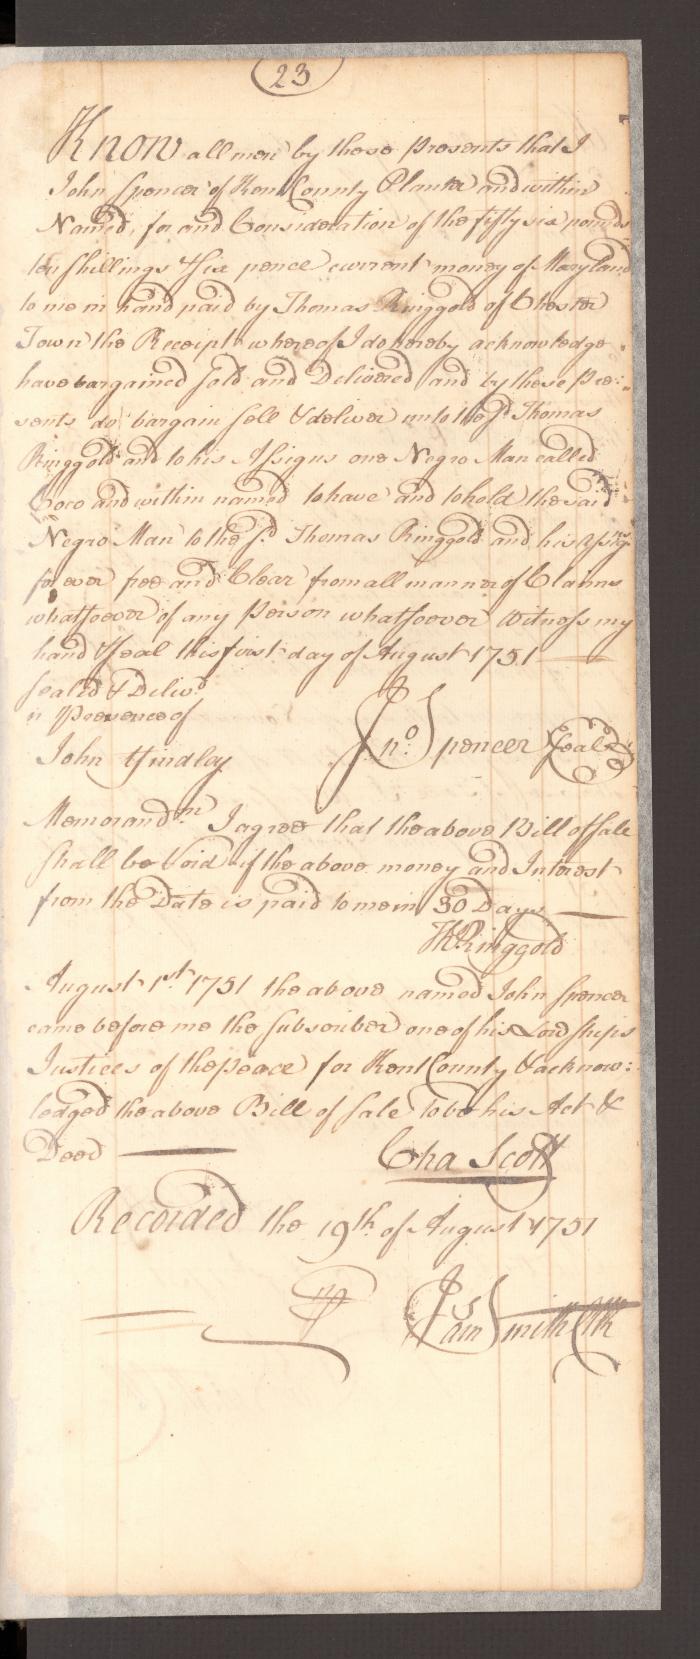 23
Know all men by these Presents that I
John Spencer of Kent County Planter and within
Named, for and Consideration of the fifty six pounds
ten shillings & six pence current money of Maryland
to me in hand paid by Thomas Ringgold of Chester
Town the Receipt whereof I do hereby acknowledge
have bargained sold and Delivered and by these Pre:
sents do bargain sell & deliver unto the sd. Thomas
Ringgold and to his Assigns one Negro Man called
Coco and within named to have and to hold the said
Negro Man to the sd. Thomas Ringgold and his Assigns
for ever free and Clear from all manner of Claims
whatsoever of any Person whatsoever Witness my
hand & seal this first day of August 1751
Seal'd & Deliv.d
in Presence of
Jno. Spencer Seal
John Hindley
Memorand.m I agree that the above Bill of Sale
Shall be Void if the above money and Interest
from the Date is paid to me in 30 Days
Ringgold
August 1st. 1751 the above named John Spencer
came before me the Subscriber one of his Lordships
Justices of the peace for Kent County & acknow:
ledged the above Bill of Sale to be his Act &
Deed
Cha Scott
Recorded the 19th of August 1751
Jas Smith Clk